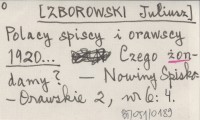 [ZBOROWSKI Juliusz]
Polacy spiscy i orawscy
1920... Czego żon-
damy? — Nowiny Spisko
-Orawskie 2, nr 6: 4.